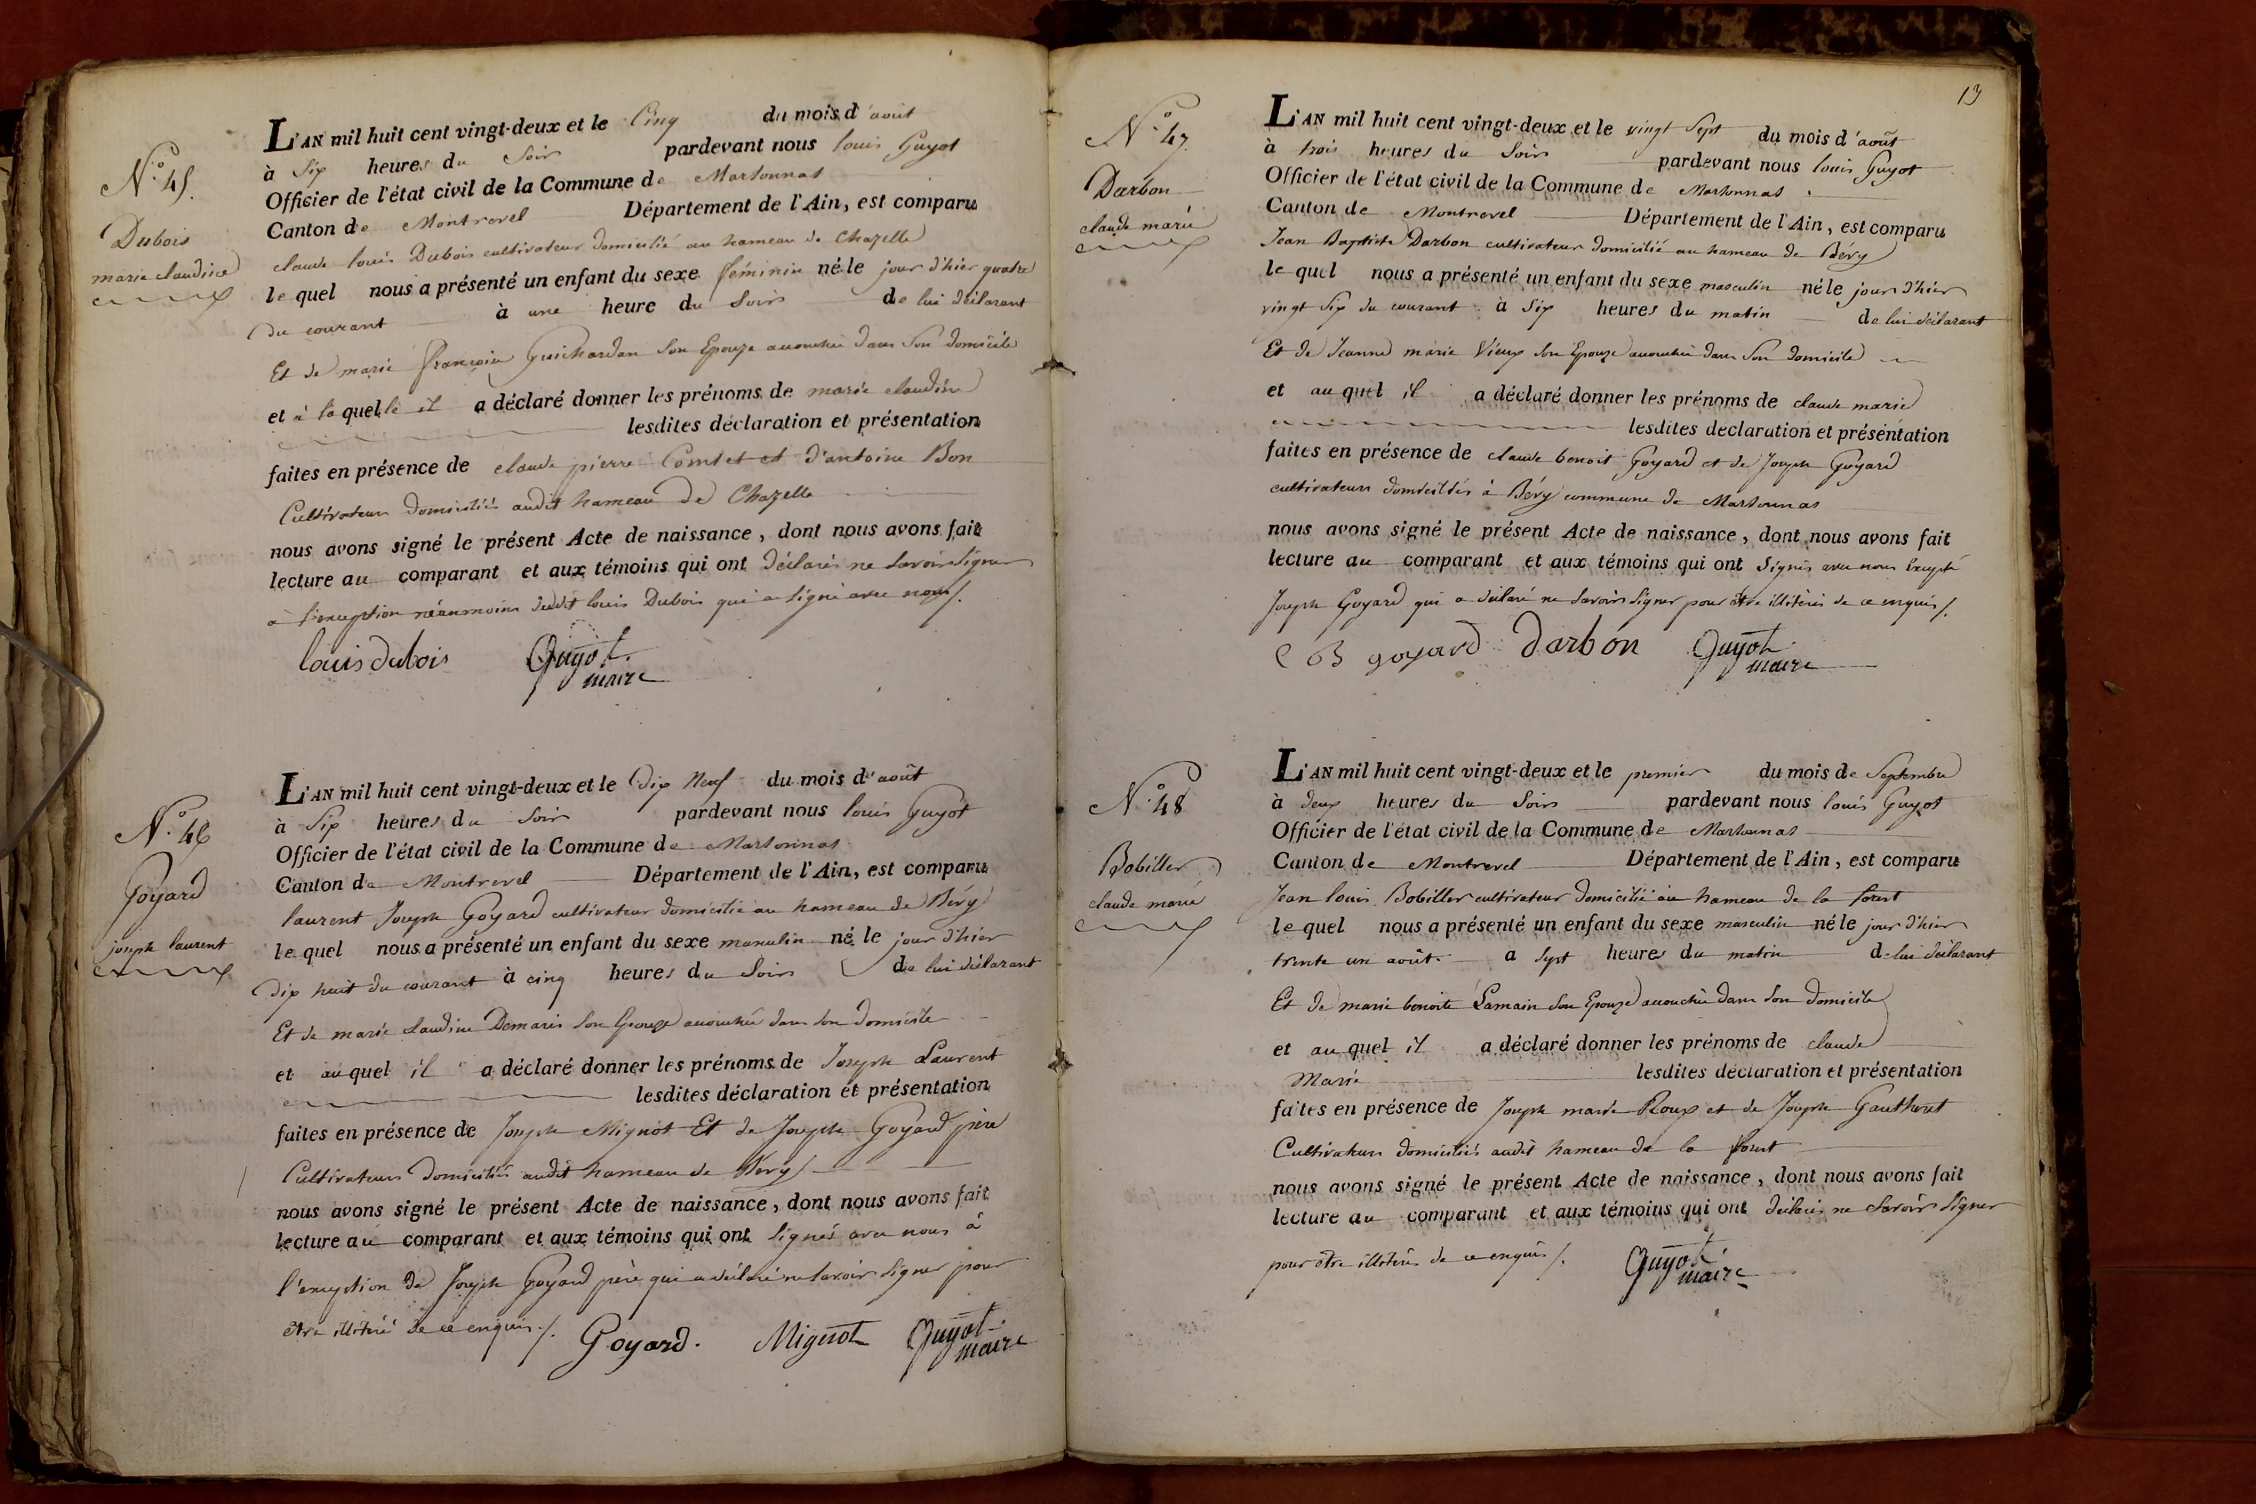 N.o 45.
Dubois
marie claudine
L'AN mil huit cent vingt-deux et le Cinq du mois d'août
à Six heures du Soir pardevant nous louis Guyot
Officier de l'état civil de la Commune de Marsonnas
Canton de Montrevel Département de l'Ain, est comparu
claude louis Dubois cultivateur domicilié au hameau de Chazelle
lequel nous a présenté un enfant du sexe féminin né le jour d'hier quatre
du courant à une heure du Soir de lui déclarant
Et de marie françoise Guichardan Son Epouze accouchée dans Son domicile
et à laquelle il a déclaré donner les prénoms de marie claudine
lesdites déclaration et présentation
faites en présence de claude pierre Comtet et d'antoine Bon
Cultivateurs domiciliés audit hameau de Chazelle
nous avons signé le présent Acte de naissance, dont nous avons fait
lecture au comparant et aux témoins qui ont déclarés ne Savoir Signer
à l'exception néanmoins dudit louis Dubois qui a Signé avec nous /.
louis dubois Guyot.
maire
N.o 46
Goyard
joseph laurent
L'AN mil huit cent vingt-deux et le Dix Neuf du mois d'août
à Six heures du Soir pardevant nous louis Guyot
Officier de l'état civil de la Commune de Marsonnas
Canton de Montrevel Département de l'Ain, est comparu
laurent Joseph Goyard cultivateur domicilié au hameau de Béry
lequel nous a présenté un enfant du sexe masculin né le jour d'hier
Dix huit du courant à cinq heures du Soir de lui déclarant
Et de marie claudine Demaris Son Epouze accouchée dans Son domicile
et auquel il a déclaré donner les prénoms de Joseph Laurent
lesdites déclaration et présentation
faites en présence de Joseph Mignot Et de Joseph Goyard père
Cultivateurs domiciliés audit hameau de Béry /.
nous avons signé le présent Acte de naissance, dont nous avons fait
lecture au comparant et aux témoins qui ont Signés avec nous à
l'exception de Joseph Goyard père qui a déclaré ne Savoir Signer pour
être illitéré de ce enquis /.
Goyard. Mignot Guyot.
maire
13
N.o 47.
Darbon
claude marie
L'AN mil huit cent vingt-deux et le vingt Sept du mois d'août
à trois heures du Soir pardevant nous louis Guyot
Officier de l'état civil de la Commune de Marsonnas
Canton de Montrevel Département de l'Ain, est comparu
Jean Baptiste Darbon cultivateur domicilié au hameau de Béry
lequel nous a présenté un enfant du sexe masculin né le jour d'hier
vingt Six du courant à Six heures du matin de lui déclarant
Et de Jeanne marie Vieux Son Epouze accouchée dans Son domicile
et auquel il a déclaré donner les prénoms de claude marie
lesdites déclaration et présentation
faites en présence de claude benoit Goyard et de Joseph Goyard
cultivateurs domiciliés à Béry commune de Marsonnas
nous avons signé le présent Acte de naissance, dont nous avons fait
lecture au comparant et aux témoins qui ont Signés avec nous Excepté
Joseph Goyard qui a déclaré ne Savoir Signer pour être illitéré de ce enquis /.
C B goyard Darbon Guyot.
maire
N.o 48
Bobiller
claude marie
L'AN mil huit cent vingt-deux et le premier du mois de Septembre
à deux heures du Soir pardevant nous louis Guyot
Officier de l'état civil de la Commune de Marsonnas
Canton de Montrevel Département de l'Ain, est comparu
Jean louis Bobiller cultivateur domicilié au hameau de la forest
lequel nous a présenté un enfant du sexe masculin né le jour d'hier
trente un août à Sept heures du matin de lui déclarant
Et de marie benoite Lamain Son Epouze accouchée dans Son domicile
et auquel il a déclaré donner les prénoms de claude
Marie lesdites déclaration et présentation
faites en présence de Joseph marie Roux et de Joseph Gautheret
Cultivateurs domiciliés audit hameau de la forest
nous avons signé le présent Acte de naissance, dont nous avons fait
lecture au comparant et aux témoins qui ont déclarés ne Savoir Signer
pour être illitérés de ce enquis /. Guyot.
maire